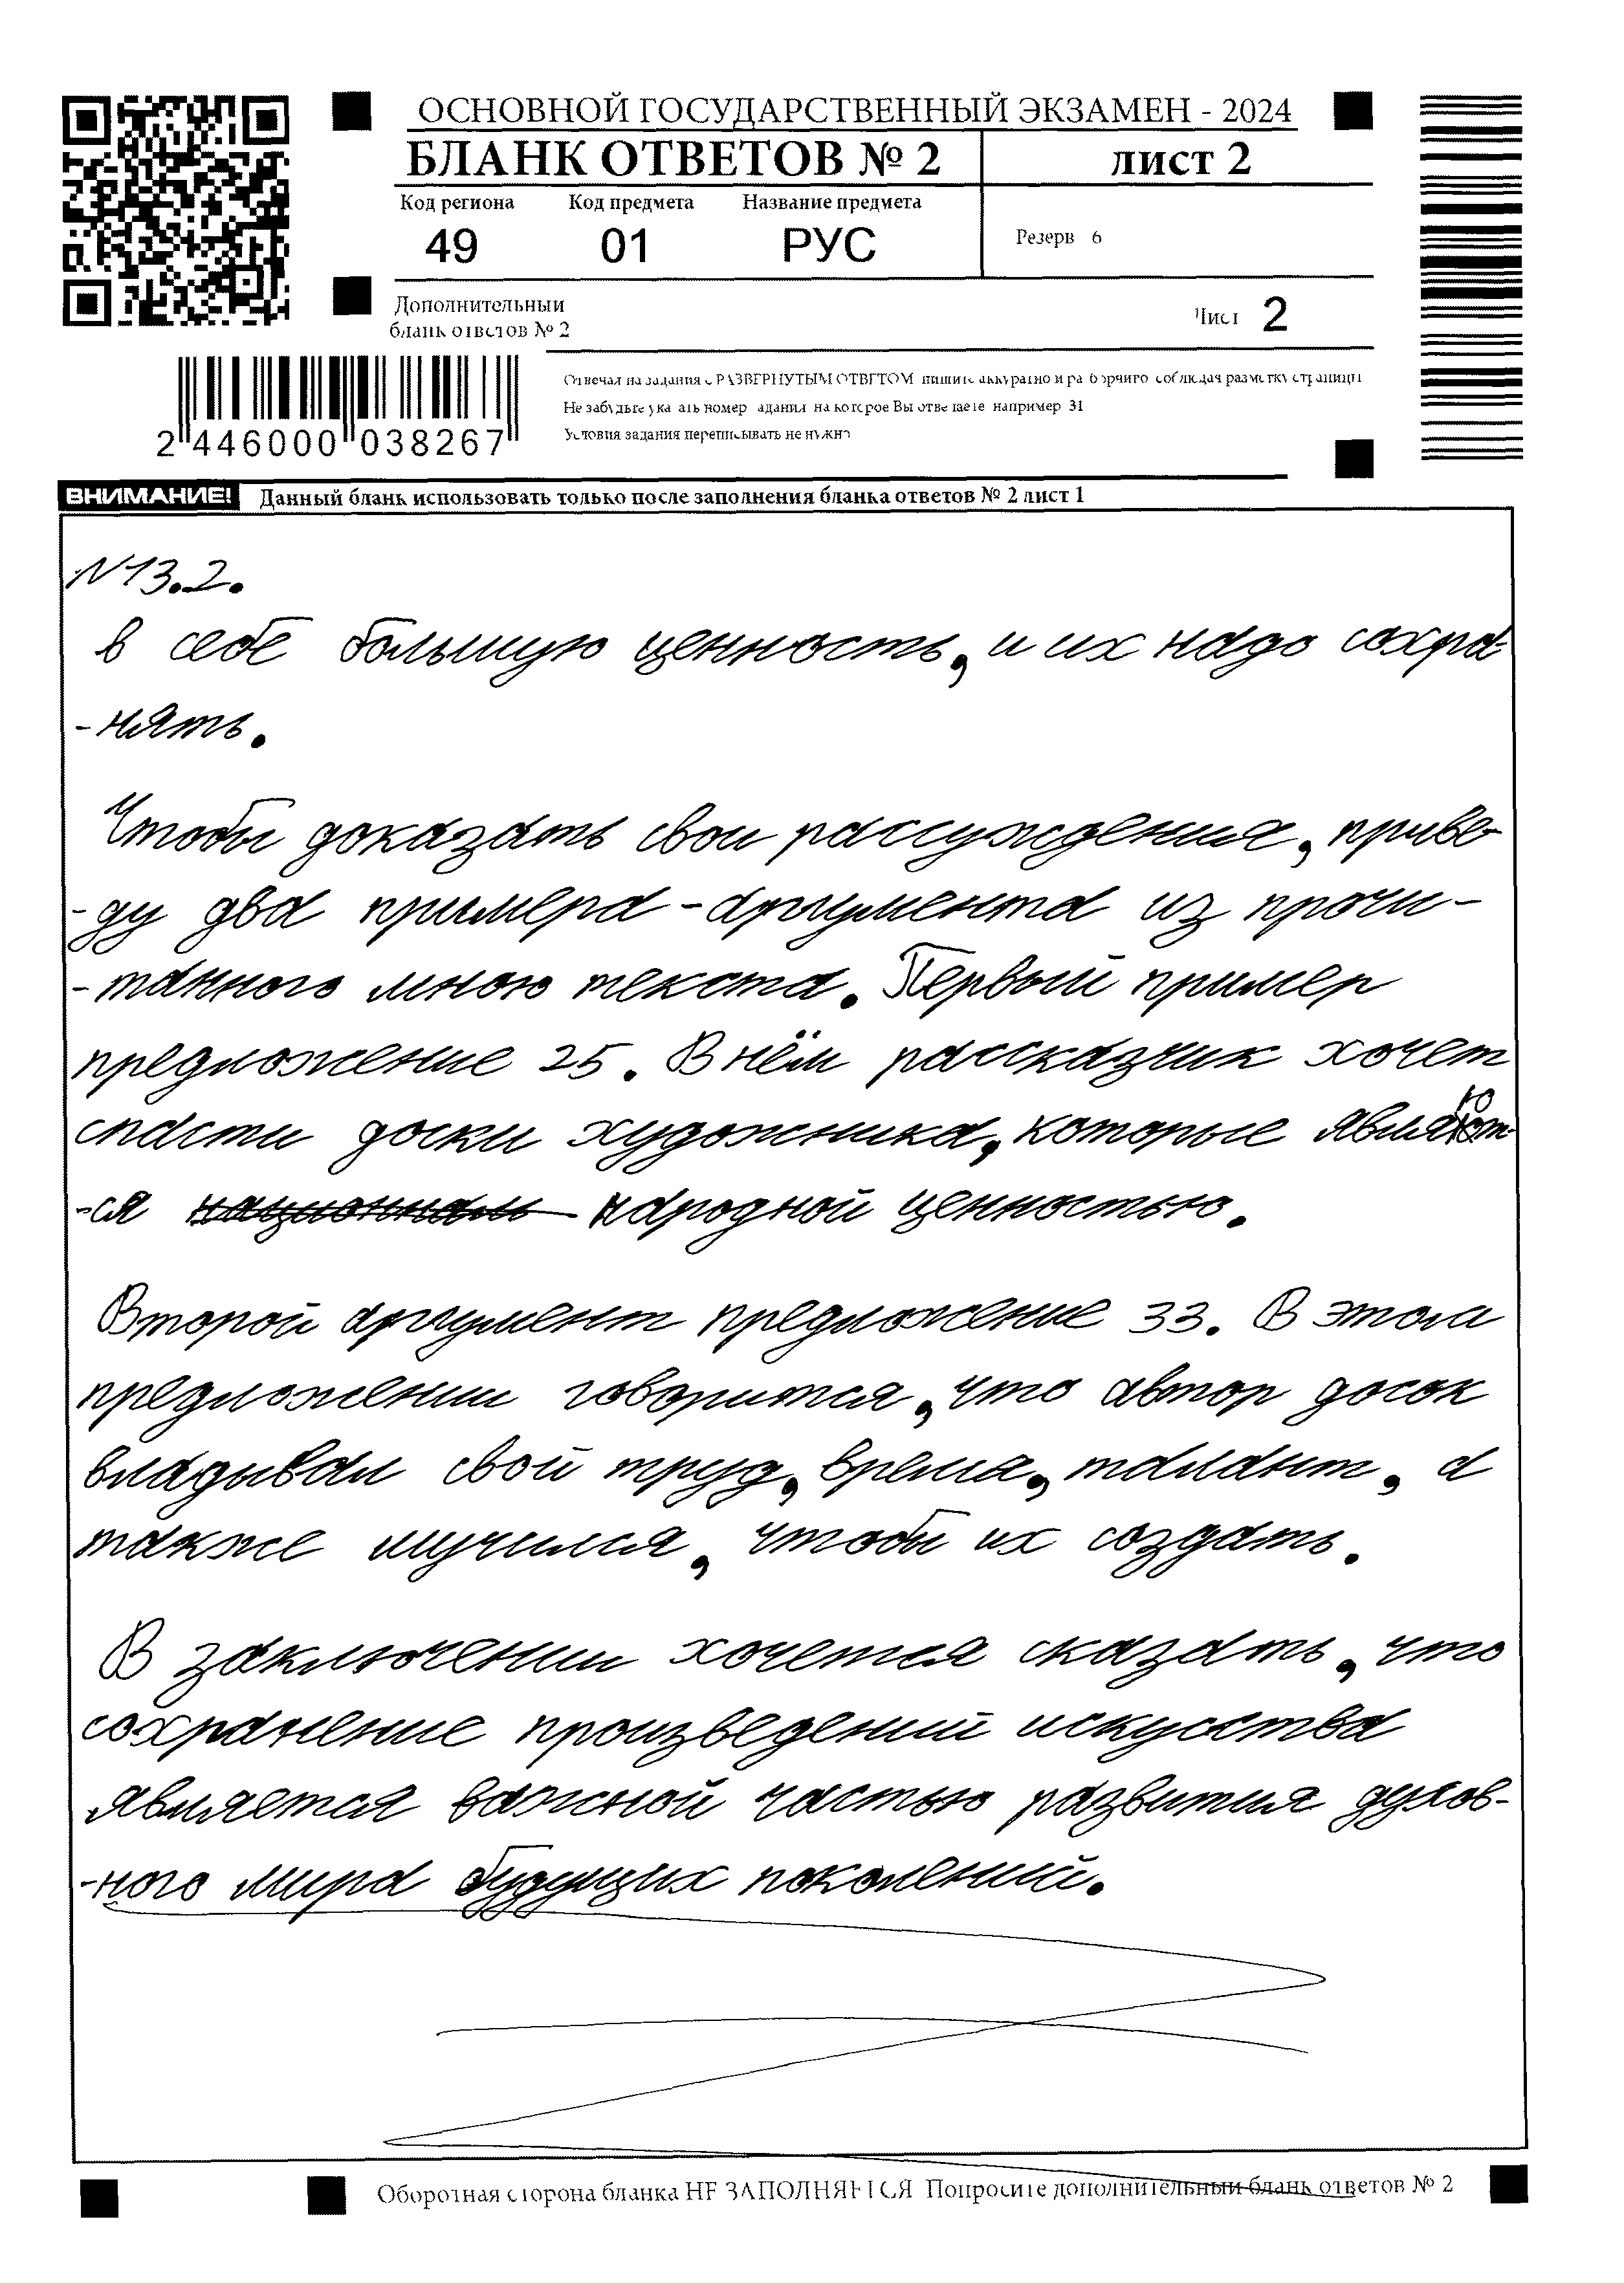 ОСНОВНОЙ ГОСУДАРСТВЕННЫЙ ЭКЗАМЕН - 2024
БЛАНК ОТВЕТОВ № 2 лист 2
Код региона Код предмета Название предмета
49 01 РУС Резерв 6
Дополнительный
бланк ответов № 2
Лист 2
2 446000 038267
Отвечая на задания с РАЗВЕРНУТЫМ ОТВЕТОМ пишите аккуратно и разборчиво соблюдая разметку страницы
Не забудьте указать номер задания на которое Вы отвечаете например 31
Условия задания переписывать не нужно
ВНИМАНИЕ! Данный бланк использовать только после заполнения бланка ответов № 2 лист 1
№13.2.
в себе большую ценность, и их надо сохра-
-нять.
Чтобы доказать свои рассуждения, приве-
-ду два примера-аргумента из прочи-
-танного мною текста. Первый пример
предложение 25. В нём рассказчик хочет
спасти доски художника, которые являют-
-ся национналь народной ценностью.
Второй аргумент предложение 33. В этом
предложении говорится, что автор досок
вкладывал свой труд, время, талант, а
также мучился, чтобы их создать.
В заключении хочется сказать, что
сохранение произведений искусства
является важной частью развития духов-
-ного мира будущих поколений.
Оборотная сторона бланка НЕ ЗАПОЛНЯЕТСЯ Попросите дополнительный бланк ответов № 2